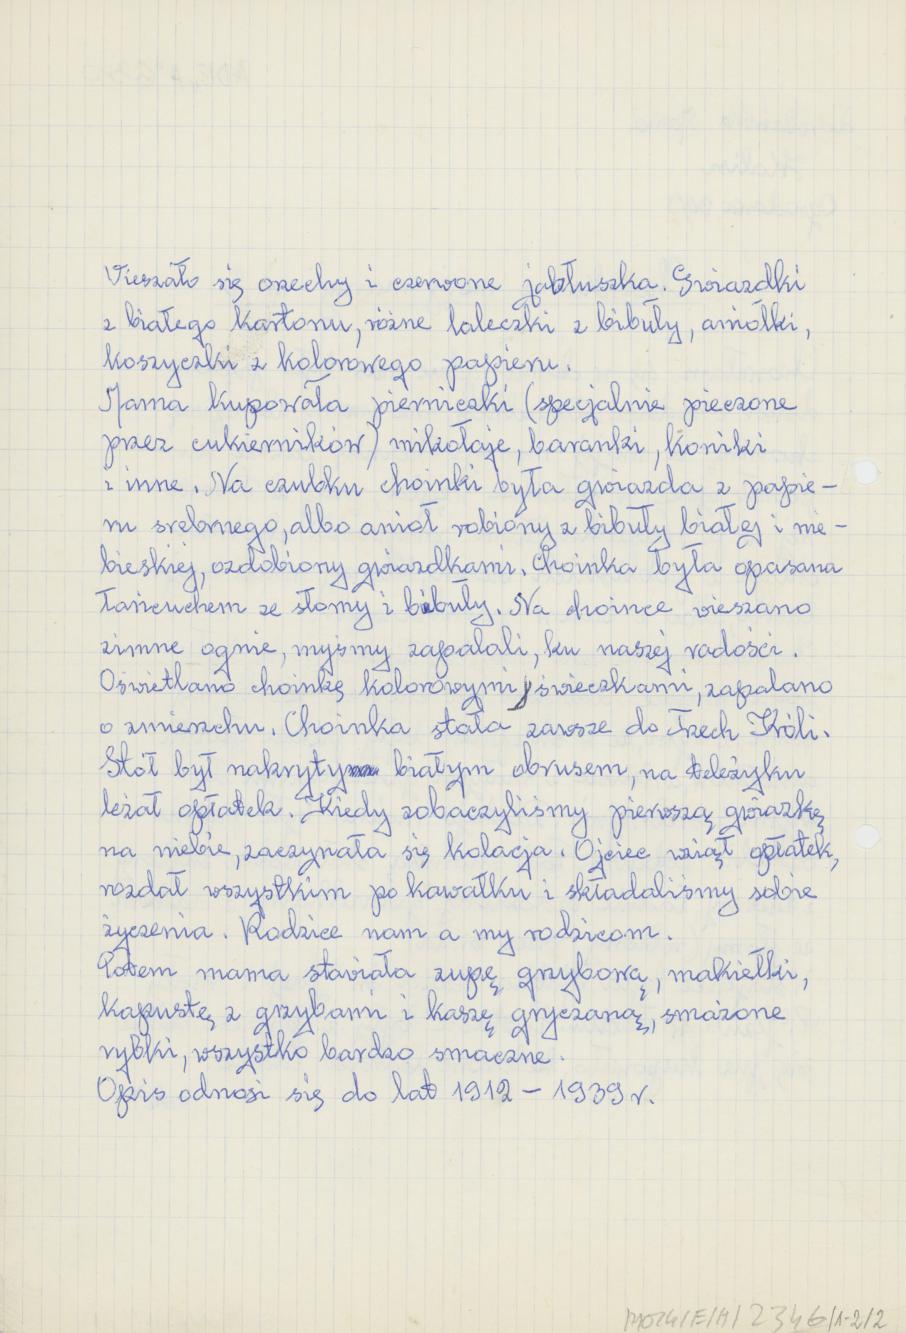 Wieszało się orzechy i czerwone jabłuszka. Gwiazdki
z białego kartonu, różne laleczki z bibuły, aniołki,
koszyczki z kolorowego papieru.
Mama kupowała pierniczki (specjalnie pieczone
przez cukierników) mikołaje, baranki, koniki
i inne. Na czubku choinki była gwiazda z papie-
ru srebrnego, albo anioł robiony z bibuły białej i nie-
bieskiej, ozdobiony gwiazdkami. Choinka była opasana
łańcuchem ze słomy i bibuły. Na choince wieszano
zimne ognie, myśmy zapalali, ku naszej radości.
Oświetlano choinkę kolorowymi świeczkami, zapalano
o zmierzchu. Choinka stała zawsze do Trzech Króli.
Stół był nakryty białym obrusem, na teleżyku
leżał opłatek. Kiedy zobaczyliśmy pierwszą gwiazkę
na niebie, zaczynała się kolacja. Ojciec wziął opłatek,
rozdał wszystkim po kawałku i składaliśmy sobie
życzenia. Rodzice nam a my rodzicom.
Potem mama stawiała zupę grzybową, makiełki,
kapustę z grzybami i kaszę gryczaną, smażone
rybki, wszystko bardzo smaczne.
Opis odnosi się do lat 1912 – 1939 r.
/E/H/2346/1-2/2